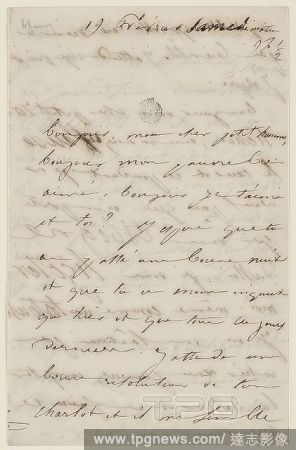 19 Février Samedi matin
9h ½
Bonjour, mon cher petit homme,
bonjour mon pauvre bien
aimé, bonjour je t'aime
et toi? J'espère que tu
as passé une bonne nuit
et que tu es moins
qu'hier et que tous ces jours
derniers. J'attends une
bonne résolution de ton
Charlot et il me semble
TPG
www.tpgnews.com / 達志影像